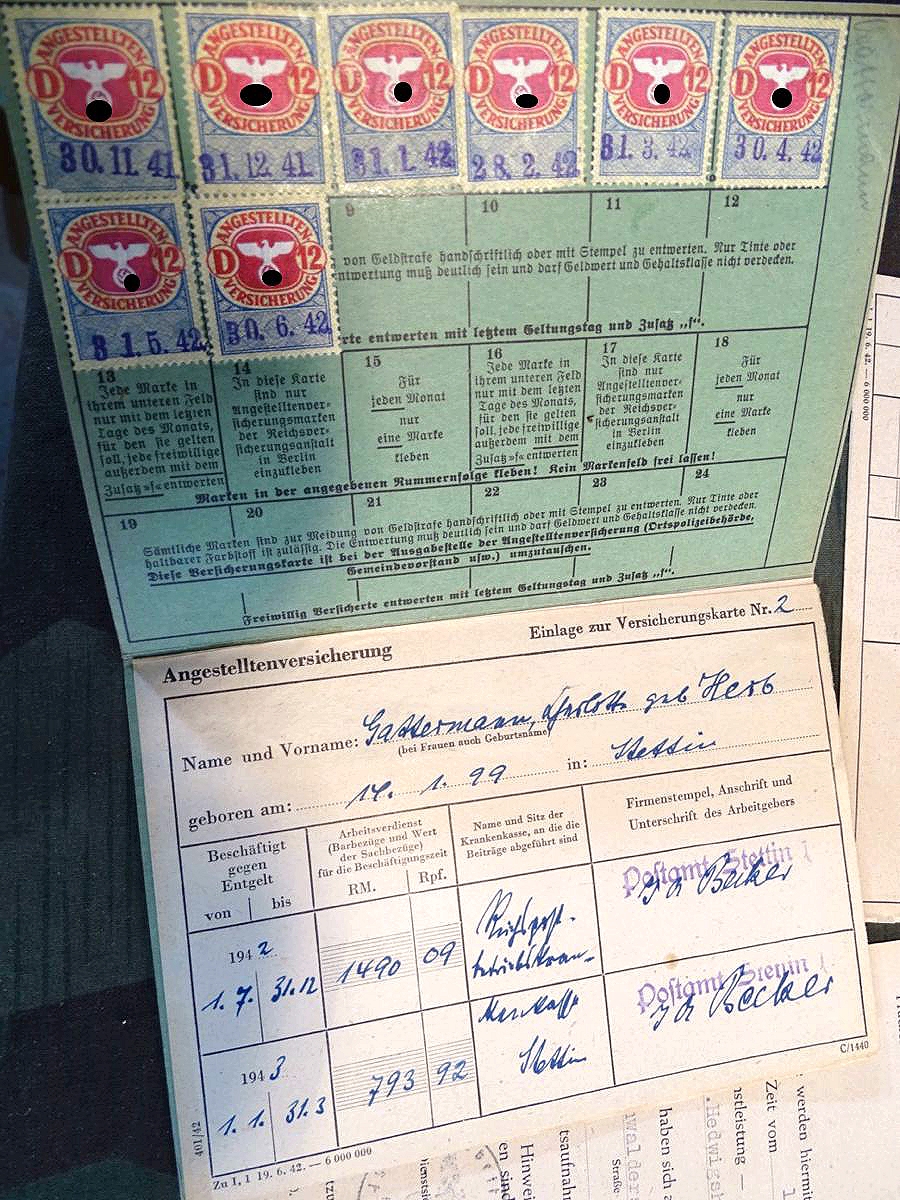 ANGESTELLTEN D 12 VERSICHERUNG 30.11.41
ANGESTELLTEN D 12 VERSICHERUNG 31.12.41.
ANGESTELLTEN D 12 VERSICHERUNG 31.1.42
ANGESTELLTEN D 12 VERSICHERUNG 28.2.42
ANGESTELLTEN D 12 VERSICHERUNG 31.3.42
ANGESTELLTEN D 12 VERSICHERUNG 30.4.42
ANGESTELLTEN D 12 VERSICHERUNG 31.5.42
ANGESTELLTEN D 12 VERSICHERUNG 30.6.42
9 10 11 12
von Geldstrafe handschriftlich oder mit Stempel zu entwerten. Nur Tinte oder
ntwertung muß deutlich sein und darf Geldwert und Gehaltsklasse nicht verdecken.
rte entwerten mit letztem Geltungstag und Zusatz „f“.
13
Jede Marke in
ihrem unteren Feld
nur mit dem letzten
Tage des Monats,
für den sie gelten
soll, jede freiwillige
außerdem mit dem
Zusatz »f« entwerten
14
In diese Karte
sind nur
Angestelltenver-
sicherungsmarken
der Reichsver-
sicherungsanstalt
in Berlin
einzukleben
15
Für
jeden Monat
nur
eine Marke
kleben
16
Jede Marke in
ihrem unteren Feld
nur mit dem letzten
Tage des Monats,
für den sie gelten
soll, jede freiwillige
außerdem mit dem
Zusatz »f« entwerten
17
In diese Karte
sind nur
Angestelltenver-
sicherungsmarken
der Reichsver-
sicherungsanstalt
in Berlin
einzukleben
18
Für
jeden Monat
nur
eine Marke
kleben
Marken in der angegebenen Nummernfolge kleben! Kein Markenfeld frei lassen!
19 20 21 22 23 24
Sämtliche Marken sind zur Meidung von Geldstrafe handschriftlich oder mit Stempel zu entwerten. Nur Tinte oder
haltbarer Farbstoff ist zulässig. Die Entwertung muß deutlich sein und darf Geldwert und Gehaltsklasse nicht verdecken.
Diese Versicherungskarte ist bei der Ausgabestelle der Angestelltenversicherung (Ortspolizeibehörde,
Gemeindevorstand usw.) umzutauschen.
Freiwillig Versicherte entwerten mit letztem Geltungstag und Zusatz „f“.
Angestelltenversicherung
Einlage zur Versicherungskarte Nr. 2
Name und Vorname: Gattermann, Charlotte geb Herb
(bei Frauen auch Geburtsname)
geboren am: 14. 1. 99 in: Stettin
Beschäftigt
gegen
Entgelt
von bis
Arbeitsverdienst
(Barbezüge und Wert
der Sachbezüge)
für die Beschäftigungszeit
RM. Rpf.
Name und Sitz der
Krankenkasse, an die die
Beiträge abgeführt sind
Firmenstempel, Anschrift und
Unterschrift des Arbeitgebers
1942
1. 7. 31.12
1490 09
Reichspost-
betriebskran-
kenkasse
Stettin
Postamt Stettin 1
Becker
1943
1. 1. 31.3
793 92
Postamt Stettin 1
Becker
C/1440
401/42
Zu I, 1 19. 6. 42. — 6 000 000
I, 1 19. 6. 42. — 6 000 000
werden hiermit
Zeit vom
nstleistung —
.Hedwigs
haben sich a
walder
Straße:
tsaufnahm
Hinwei
en sind